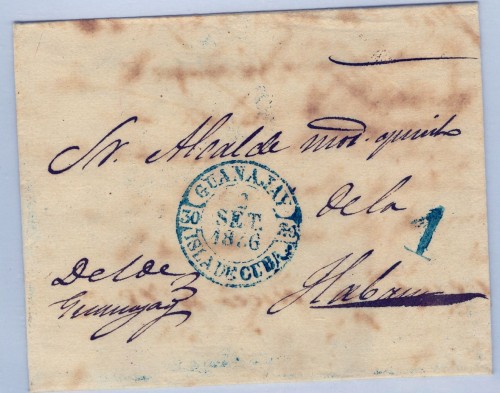 Sr. Alcalde mor. quinto
de la
Habana
Del de
Guanajay
GUANAJAY
2
SET.
1876
30
ISLA DE CUBA
1